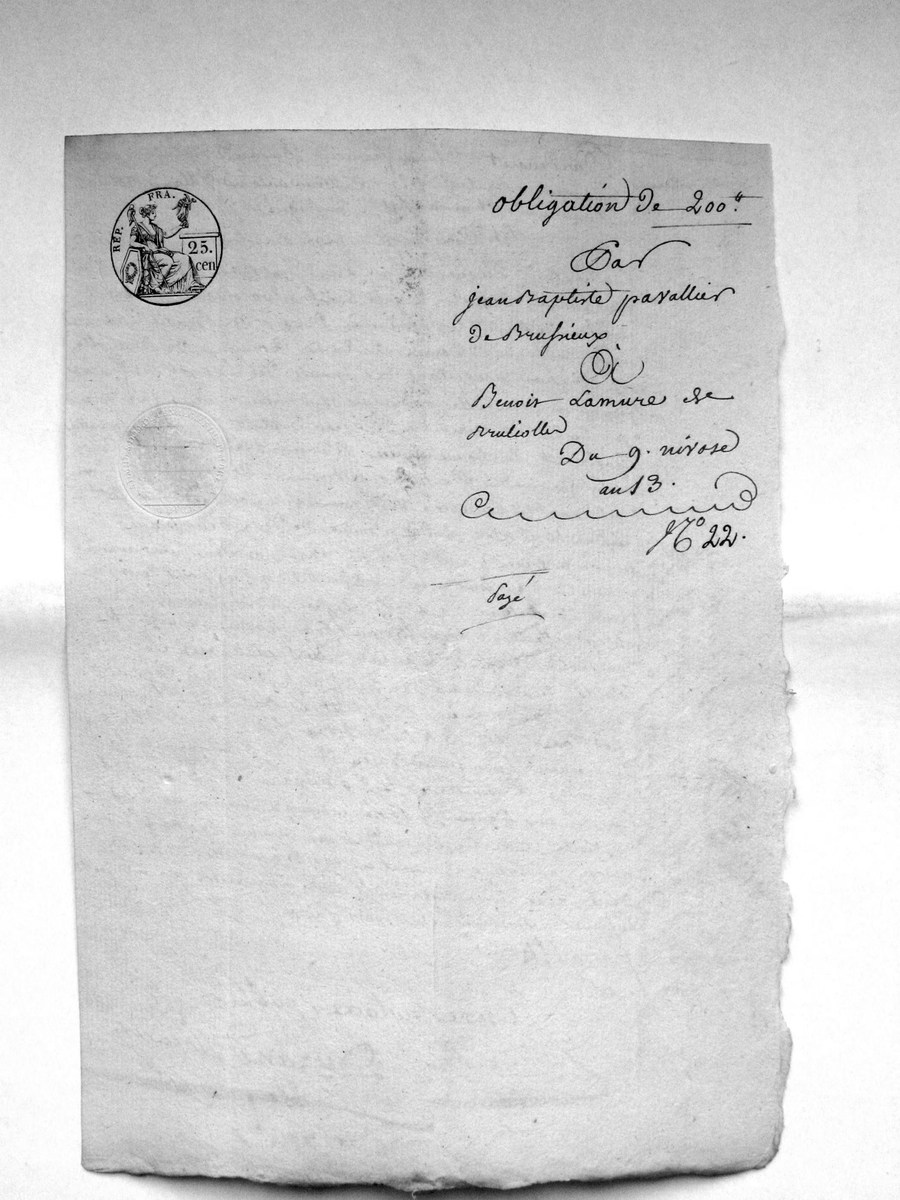 RÉP. FRA.
25.
cen
obligation De 200"
Par
jean Baptiste pavallier
De Brussieux
À
Benoit Lamure de
Brullolles
Du 9. nivose
an 13.
N° 22.
Payé